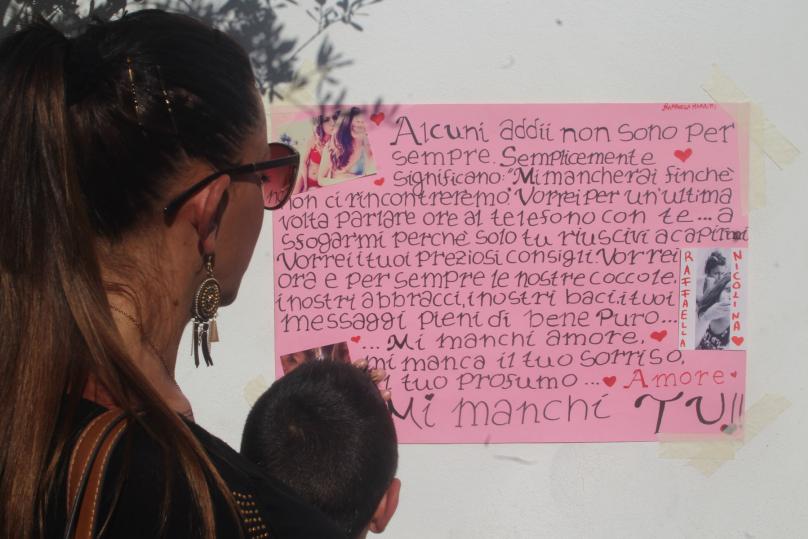 Alcuni addii non sono per
sempre. Semplicemente
significano: "Mi mancherai finchè
non ci rincontreremo". Vorrei per un'ultima
volta parlare ore al telefono con te... a
sfogarmi perchè solo tu riuscivi a capirmi
Vorrei i tuoi preziosi consigli. Vorrei
ora e per sempre le nostre coccole,
i nostri abbracci, i nostri baci, i tuoi
messaggi pieni di bene puro...
... Mi manchi amore,
mi manca il tuo sorriso,
il tuo profumo ... Amore
Mi manchi TU!!
RAFFAELLA
NICOLINA